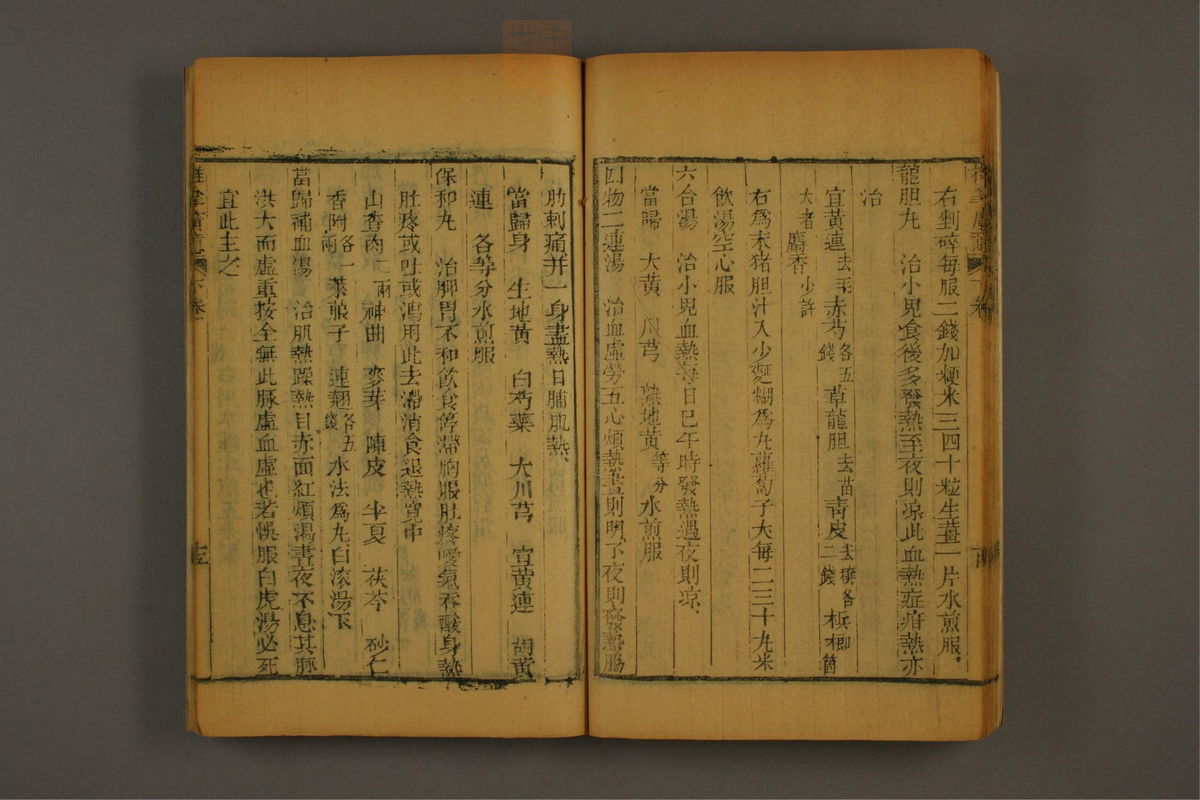 右剉碎每服二錢加粳米三四十粒生薑一片水煎服
龍胆丸　治小兒食後多發熱至夜則凉此血熱症疳熱亦
治
宜黄連去毛赤芍各五錢草龍胆去苗青皮去穰各二錢檳榔箇
大者麝香少許
右爲末猪胆汁入少麵糊爲丸蘿蔔子大每二三十九米
飲湯空心服
六合湯　治小兒血熱每日巳午時發熱遇夜則凉
當歸　大黄　川芎　熟地黄等分水煎服
四物二連湯　治血虛勞五心煩熱晝則明了夜則發熱脇
肋刺痛并一身盡熱日晡肌熱
當歸身　生地黄　白芍藥　大川芎　宣黄連　胡黄
連　各等分水煎服
保和丸　治脾胃不和飲食停滯胸服肚疼噯氣吞酸身熱
肚疼或吐或瀉用此去滯消食退熱寬中
山查肉二兩神曲　麥芽　陳皮　半夏　茯苓　砂仁
香附各一兩　菜菔子　連翹各五錢水法爲丸白滚湯下
當歸補血湯　治肌熱躁熱目赤面紅煩渴晝夜不息其脉
洪大而虛重按全無此脉虛血虛也若悞服白虎湯必死
宜此主之
推拿廣意　下卷